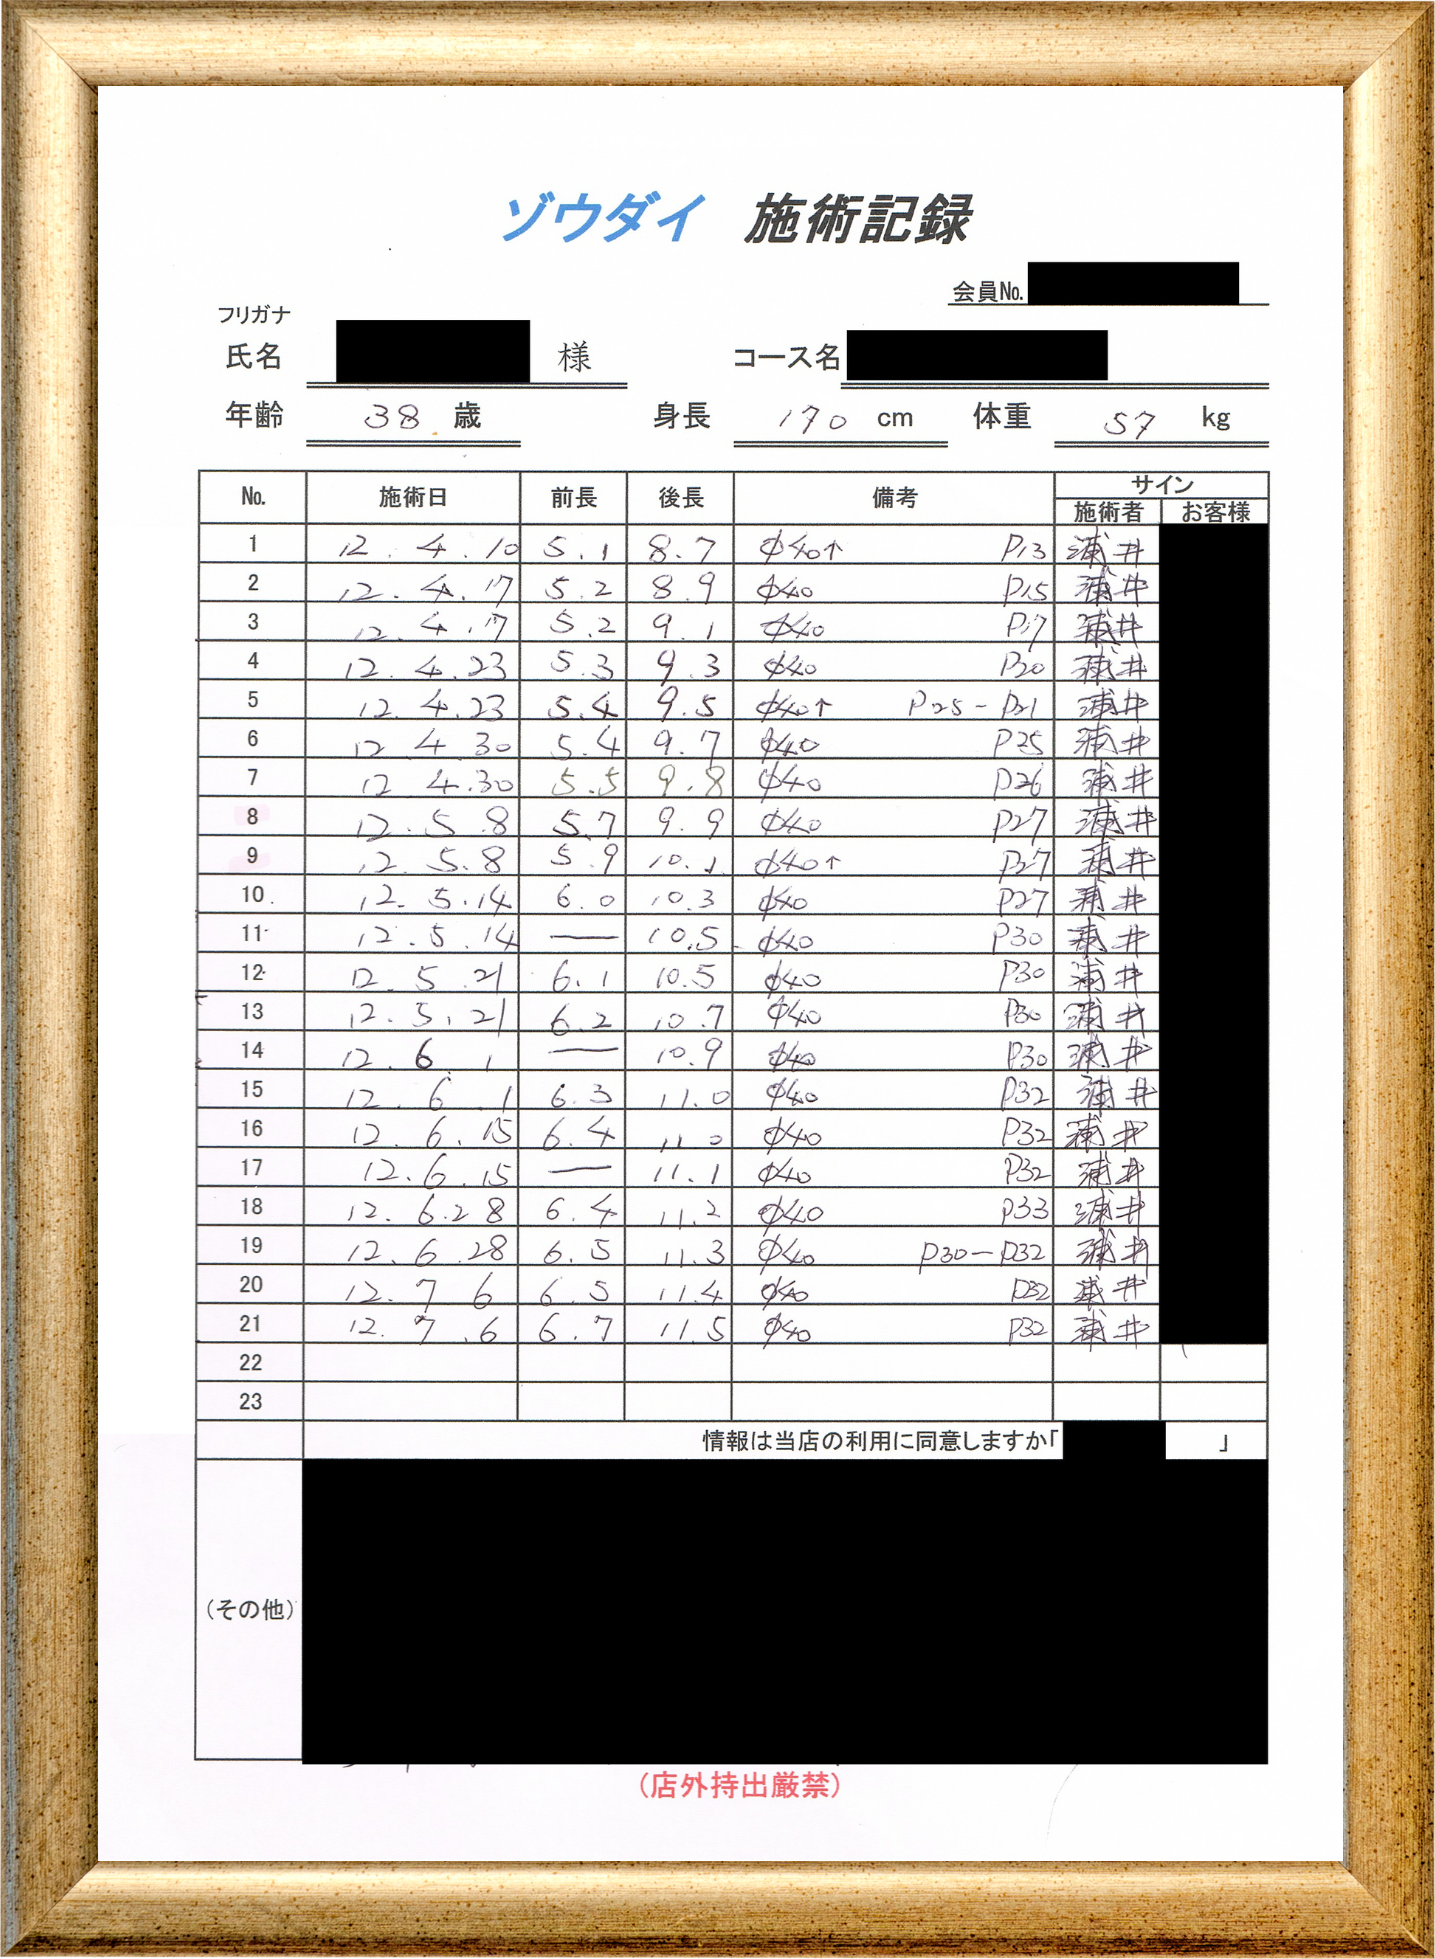 ゾウダイ 施術記録
会員No.
フリガナ
氏名 様 コース名
年齢 38 歳 身長 170 cm 体重 57 kg
No. 施術日 前長 後長 備考 サイン
施術者 お客様
1 12.4.10 5.1 8.7 φ40↑ P13 浦井
2 12.4.17 5.2 8.9 φ40 P15 浦井
3 12.4.17 5.2 9.1 φ40 P17 浦井
4 12.4.23 5.3 9.3 φ40 P20 浦井
5 12.4.23 5.4 9.5 φ40↑ P25-P21 浦井
6 12 4 30 5.4 9.7 φ40 P25 浦井
7 12 4.30 5.5 9.8 φ40 P26 浦井
8 12.5.8 5.7 9.9 φ40 P27 浦井
9 12.5.8 5.9 10.1 φ40↑ P27 浦井
10 12.5.14 6.0 10.3 φ40 P27 浦井
11 12.5.14 — 10.5 φ40 P30 浦井
12 12.5.21 6.1 10.5 φ40 P30 浦井
13 12.5.21 6.2 10.7 φ40 P30 浦井
14 12.6.1 — 10.9 φ40 P30 浦井
15 12.6.1 6.3 11.0 φ40 P32 浦井
16 12.6.15 6.4 11.0 φ40 P32 浦井
17 12.6.15 — 11.1 φ40 P32 浦井
18 12.6.28 6.4 11.2 φ40 P33 浦井
19 12.6.28 6.5 11.3 φ40 P30-P32 浦井
20 12.7 6 6.5 11.4 φ40 P32 浦井
21 12.7.6 6.7 11.5 φ40 P32 浦井
22
23
情報は当店の利用に同意しますか「 」
(その他)
(店外持出厳禁)